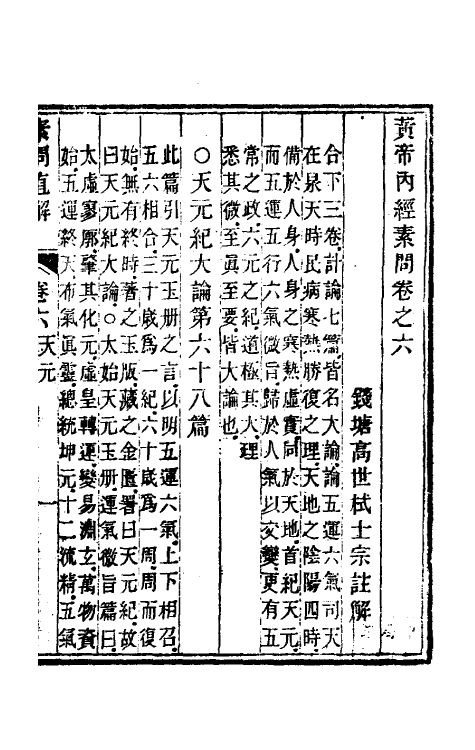 黃帝內經素問卷之六
錢塘高世栻士宗註解
合下三卷計論七篇皆名大論論五運六氣司天
在泉天時民病寒熱勝復之理天地之陰陽四時
備於人身人身之寒熱虛實同於天地首紀天元
而五運五行六氣微旨歸於人氣以交變更有五
常之政六元之紀道極其大理
悉其微至眞至要皆大論也
○天元紀大論第六十八篇
此篇引天元玉册之言以明五運六氣上下相召
五六相合三十歲爲一紀六十歲爲一周周而復
始無有終時著之玉版藏之金匱署曰天元紀故
曰天元紀大論○太始天元玉册運氣微旨篇曰
太虛寥廓肇其化元虛皇轉運變易淵玄萬物資
始五運終天布氣眞靈總統坤元十二流精五氣
素問直解
卷六 天元